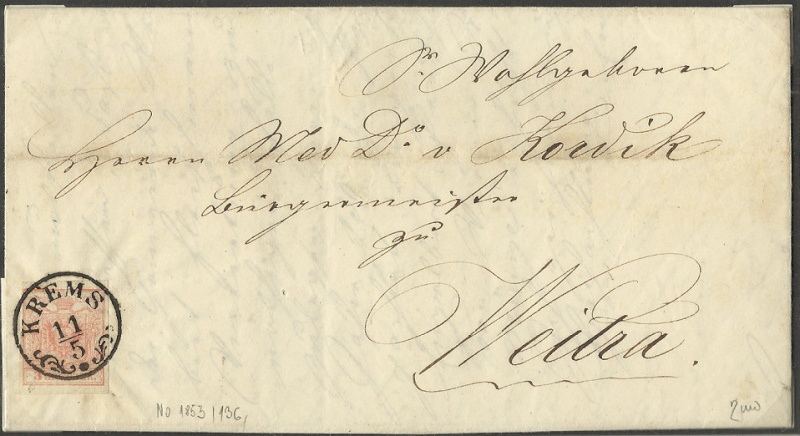 Sr. Wohlgeboren
Herrn Med Do v Kordik
Bürgermeister
zu
Weitra.
KREMS
11/5
No 1853/136,